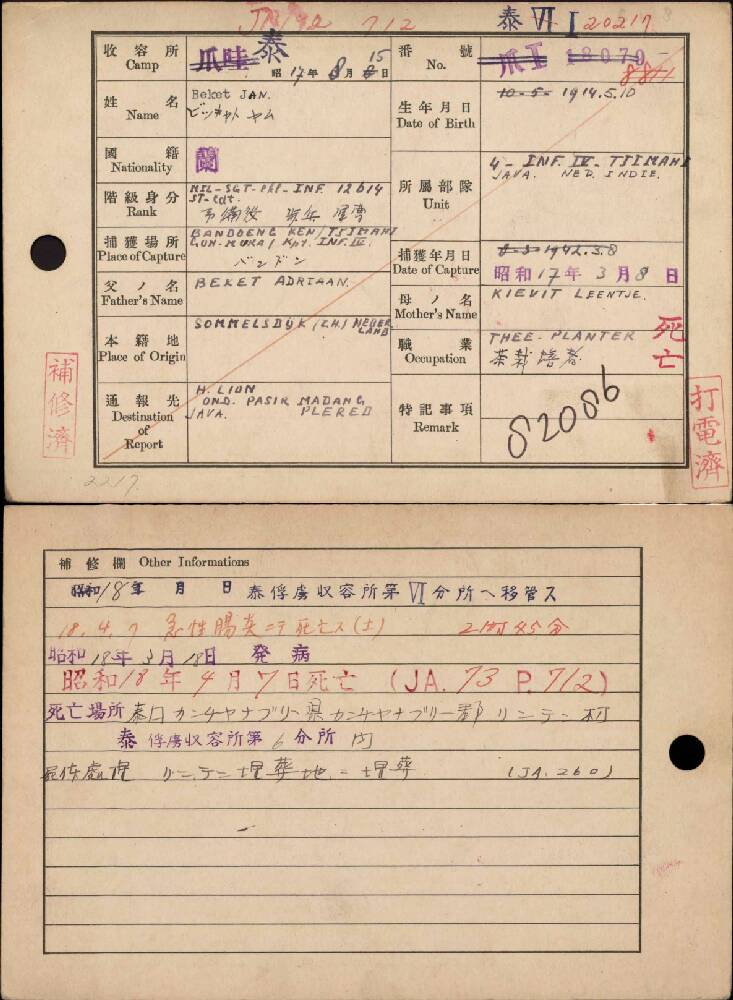 JA 142 712 泰 VI I 20217
收容所 Camp 爪哇 泰 昭17年8月15日
番號 No. 爪 I 18070 8841
姓名 Name Beket JAN.
ビツキヤト ヤム
生年月日 Date of Birth 10-5- 1914.5.10
國籍 Nationality 蘭
所屬部隊 Unit 4 - INF. IV. TJIMAHI
JAVA. NED. INDIE.
階級身分 Rank MIL-SGT- INF 12614
ST-
捕獲場所 Place of Capture BANDOENG KEN/TJIMAHI
INF. IV.
バンドン
捕獲年月日 Date of Capture 8-3-1942.3.8
昭和17年3月8日
父ノ名 Father's Name BEKET ADRIAAN.
母ノ名 Mother's Name KIEVIT LEENTJE.
本籍地 Place of Origin SOMMELSDIJK (Z.H.) NEDER
LAND
職業 Occupation THEE-PLANTER
茶栽培者
死亡
通報先 Destination of Report H. LION
OND. PASIR MADANG
JAVA. PLERED
特記事項 Remark 82086
補修濟
打電濟
2217
補修欄 Other Informations
昭和18年 月 日 泰俘虜収容所第VI分所ヘ移管ス
18.4.7 急性腸炎ニテ死亡ス(土) 21時45分
昭和18年3月18日 発病
昭和18年4月7日死亡 (JA. 73 P. 712)
死亡場所 泰国カンチヤナブリー県カンチヤナブリー郡リンテン村
泰俘虜収容所第6分所内
屍体處理 リンテン埋葬地ニ埋葬 (JA. 260)